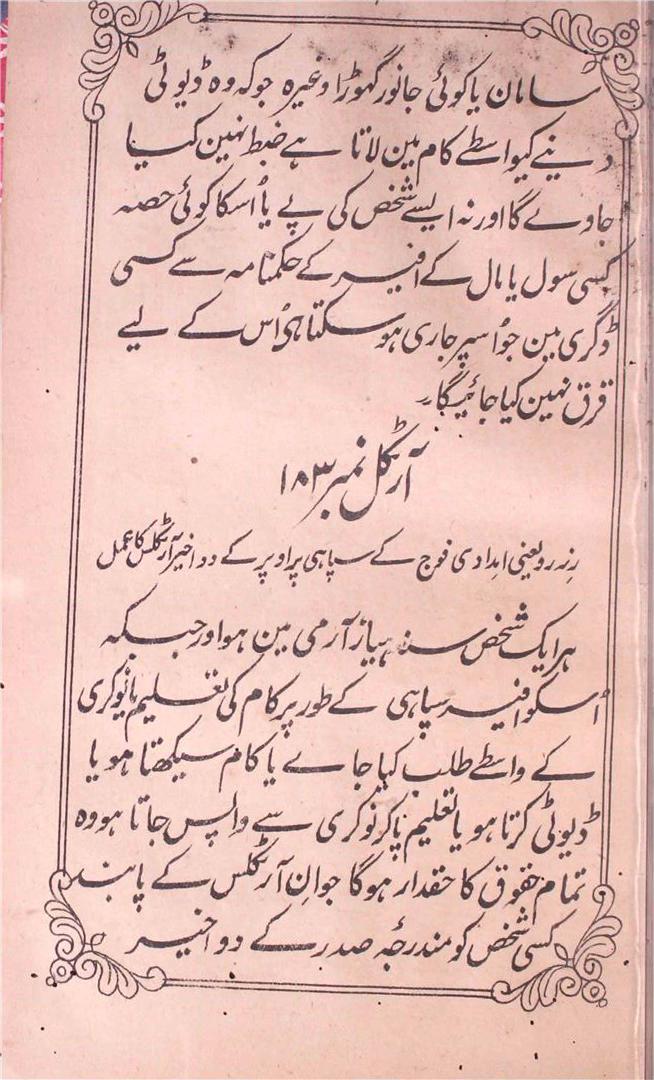 سامان یا کوئی جانور گھوڑا وغیرہ جوکہ وہ ڈیوٹی
دینے کیواسطے کام مین لاتا ہے ضبط نہین کیا
جاوے گا اور نہ ایسے شخص کی پے یا اُسکا کوئی حصہ
کسی سول یا مال کے افیسر کے حکمنامہ سے کسی
ڈگری مین جو اُسپر جاری ہو سکتا ہی اُس کے لیے
قرق نہین کیا جائیگا۔
آرٹکل نمبر ۱۸۳
رزرو یعنی امدادی فوج کے سپاہی پر اوپر کے دو اخیر آرٹکلس کا عمل
ہر ایک شخص سنہ ہیاز آرمی مین ہو اور جبکہ
اُسکو افیسر سپاہی کے طور پر کام کی تعلیم یا نوکری
کے واسطے طلب کیا جاے یا کام سیکھتا ہو یا
ڈیوٹی کرتا ہو یا تعلیم پاکر نوکری سے واپس جاتا ہو وہ
تمام حقوق کا حقدار ہوگا جو اِن آرٹکلس کے پابند
کسی شخص کو مندرجہٴ صدر کے دو اخیر